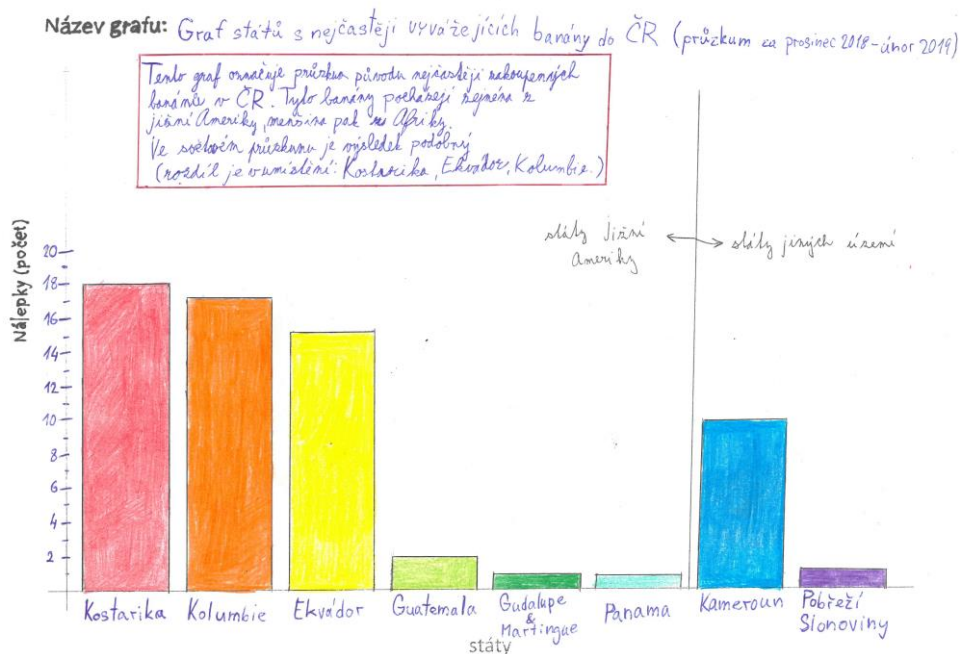 Název grafu: Graf států s nejčastěji vyvážejících banány do ČR (průzkum za prosinec 2018-únor 2019)
Tento graf označuje průzkum původu nejčastěji nakoupenných
banánů v ČR. Tyto banány pocházejí zejména z
jižní Ameriky, menšina pak z Afriky.
Ve světovém průzkumu je výsledek podobný
(rozdíl je v umístění: Kostarika, Ekvádor, Kolumbie.)
státy Jižní
Ameriky
státy jiných území
Nálepky (počet)
20
18
16
14
12
10
8
6
4
2
Kostarika
Kolumbie
Ekvádor
Guatemala
Gudalupe
&
Martingue
Panama
Kameroun
Pobřeží
Slonoviny
státy